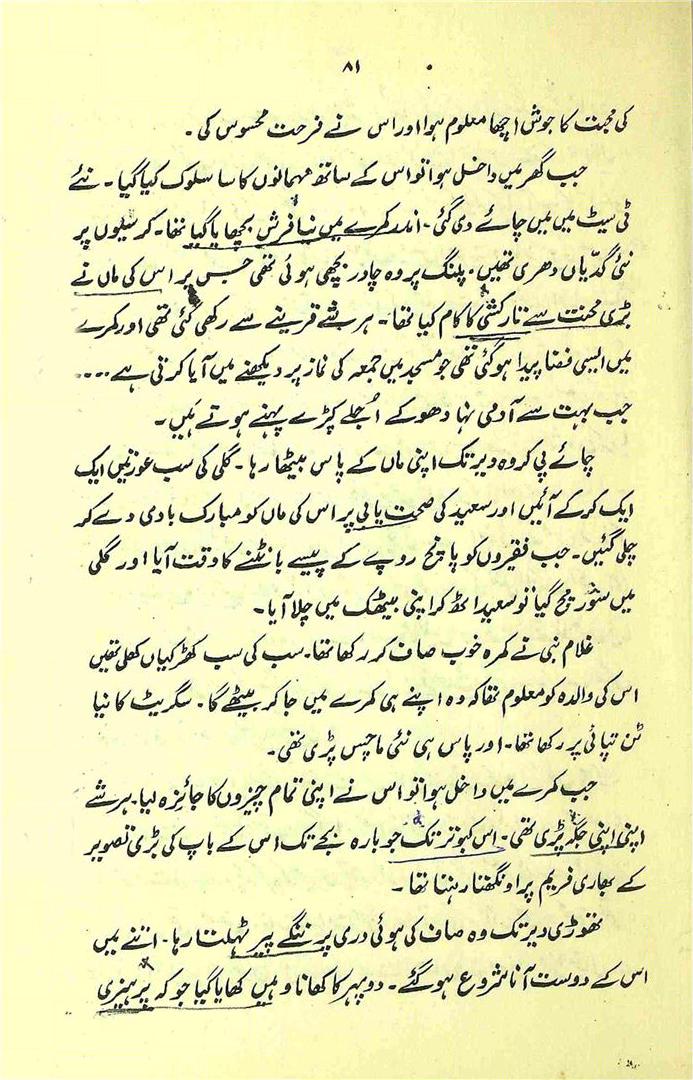 ۸۱
کی محبت کا جوش اچھا معلوم ہوا اور اس نے فرحت محسوس کی ۔
جب گھر میں داخل ہوا تو اس کے ساتھ مہمانوں کا سا سلوک کیا گیا ۔ نئے
ٹی سیٹ میں میں چائے دی گئی ۔ اندر کمرے میں نیا فرش بچھایا گیا تھا ۔ کرسیوں پر
نئی گدّیاں دھری تھیں ۔ پلنگ پر وہ چادر بچھی ہوئی تھی جس پر اس کی ماں نے
بڑی محنت سے تارکشی کا کام کیا تھا ۔ ہر شے قرینے سے رکھی گئی تھی اور کمرے
میں ایسی فضا پیدا ہو گئی تھی جو مسجد میں جمعہ کی نماز پر دیکھنے میں آیا کرتی ہے ....
جب بہت سے آدمی نہا دھو کے اُجلے کپڑے پہنے ہوتے ہیں ۔
چائے پی کر وہ دیر تک اپنی ماں کے پاس بیٹھا رہا ۔ گلی کی سب عورتیں ایک
ایک کر کے آئیں اور سعید کی صحت یابی پر اس کی ماں کو مبارک بادی دے کر
چلی گئیں ۔ جب فقیروں کو پانچ روپے کے پیسے بانٹنے کا وقت آیا اور گلی
میں شور مچ گیا تو سعید اٹھ کر اپنی بیٹھک میں چلا آیا ۔
غلام نبی نے کمرہ خوب صاف کر رکھا تھا ۔ سب کی سب کھڑکیاں کھلی تھیں
اس کی والدہ کو معلوم تھا کہ وہ اپنے ہی کمرے میں جا کر بیٹھے گا ۔ سگریٹ کا نیا
ٹن تپائی پر رکھا تھا ۔ اور پاس ہی نئی ماچس پڑی تھی ۔
جب کمرے میں داخل ہوا تو اس نے اپنی تمام چیزوں کا جائزہ لیا ۔ ہر شے
اپنی اپنی جگہ پڑی تھی ۔ اس کبوتر تک جو بارہ بجے تک اس کے باپ کی بڑی تصویر
کے بھاری فریم پر اونگھتا رہتا تھا ۔
تھوڑی دیر تک وہ صاف کی ہوئی دری پر ننگے پیر ٹہلتا رہا ۔ اتنے میں
اس کے دوست آنا شروع ہو گئے ۔ دوپہر کا کھانا وہیں کھایا گیا جو کہ پرہیزی